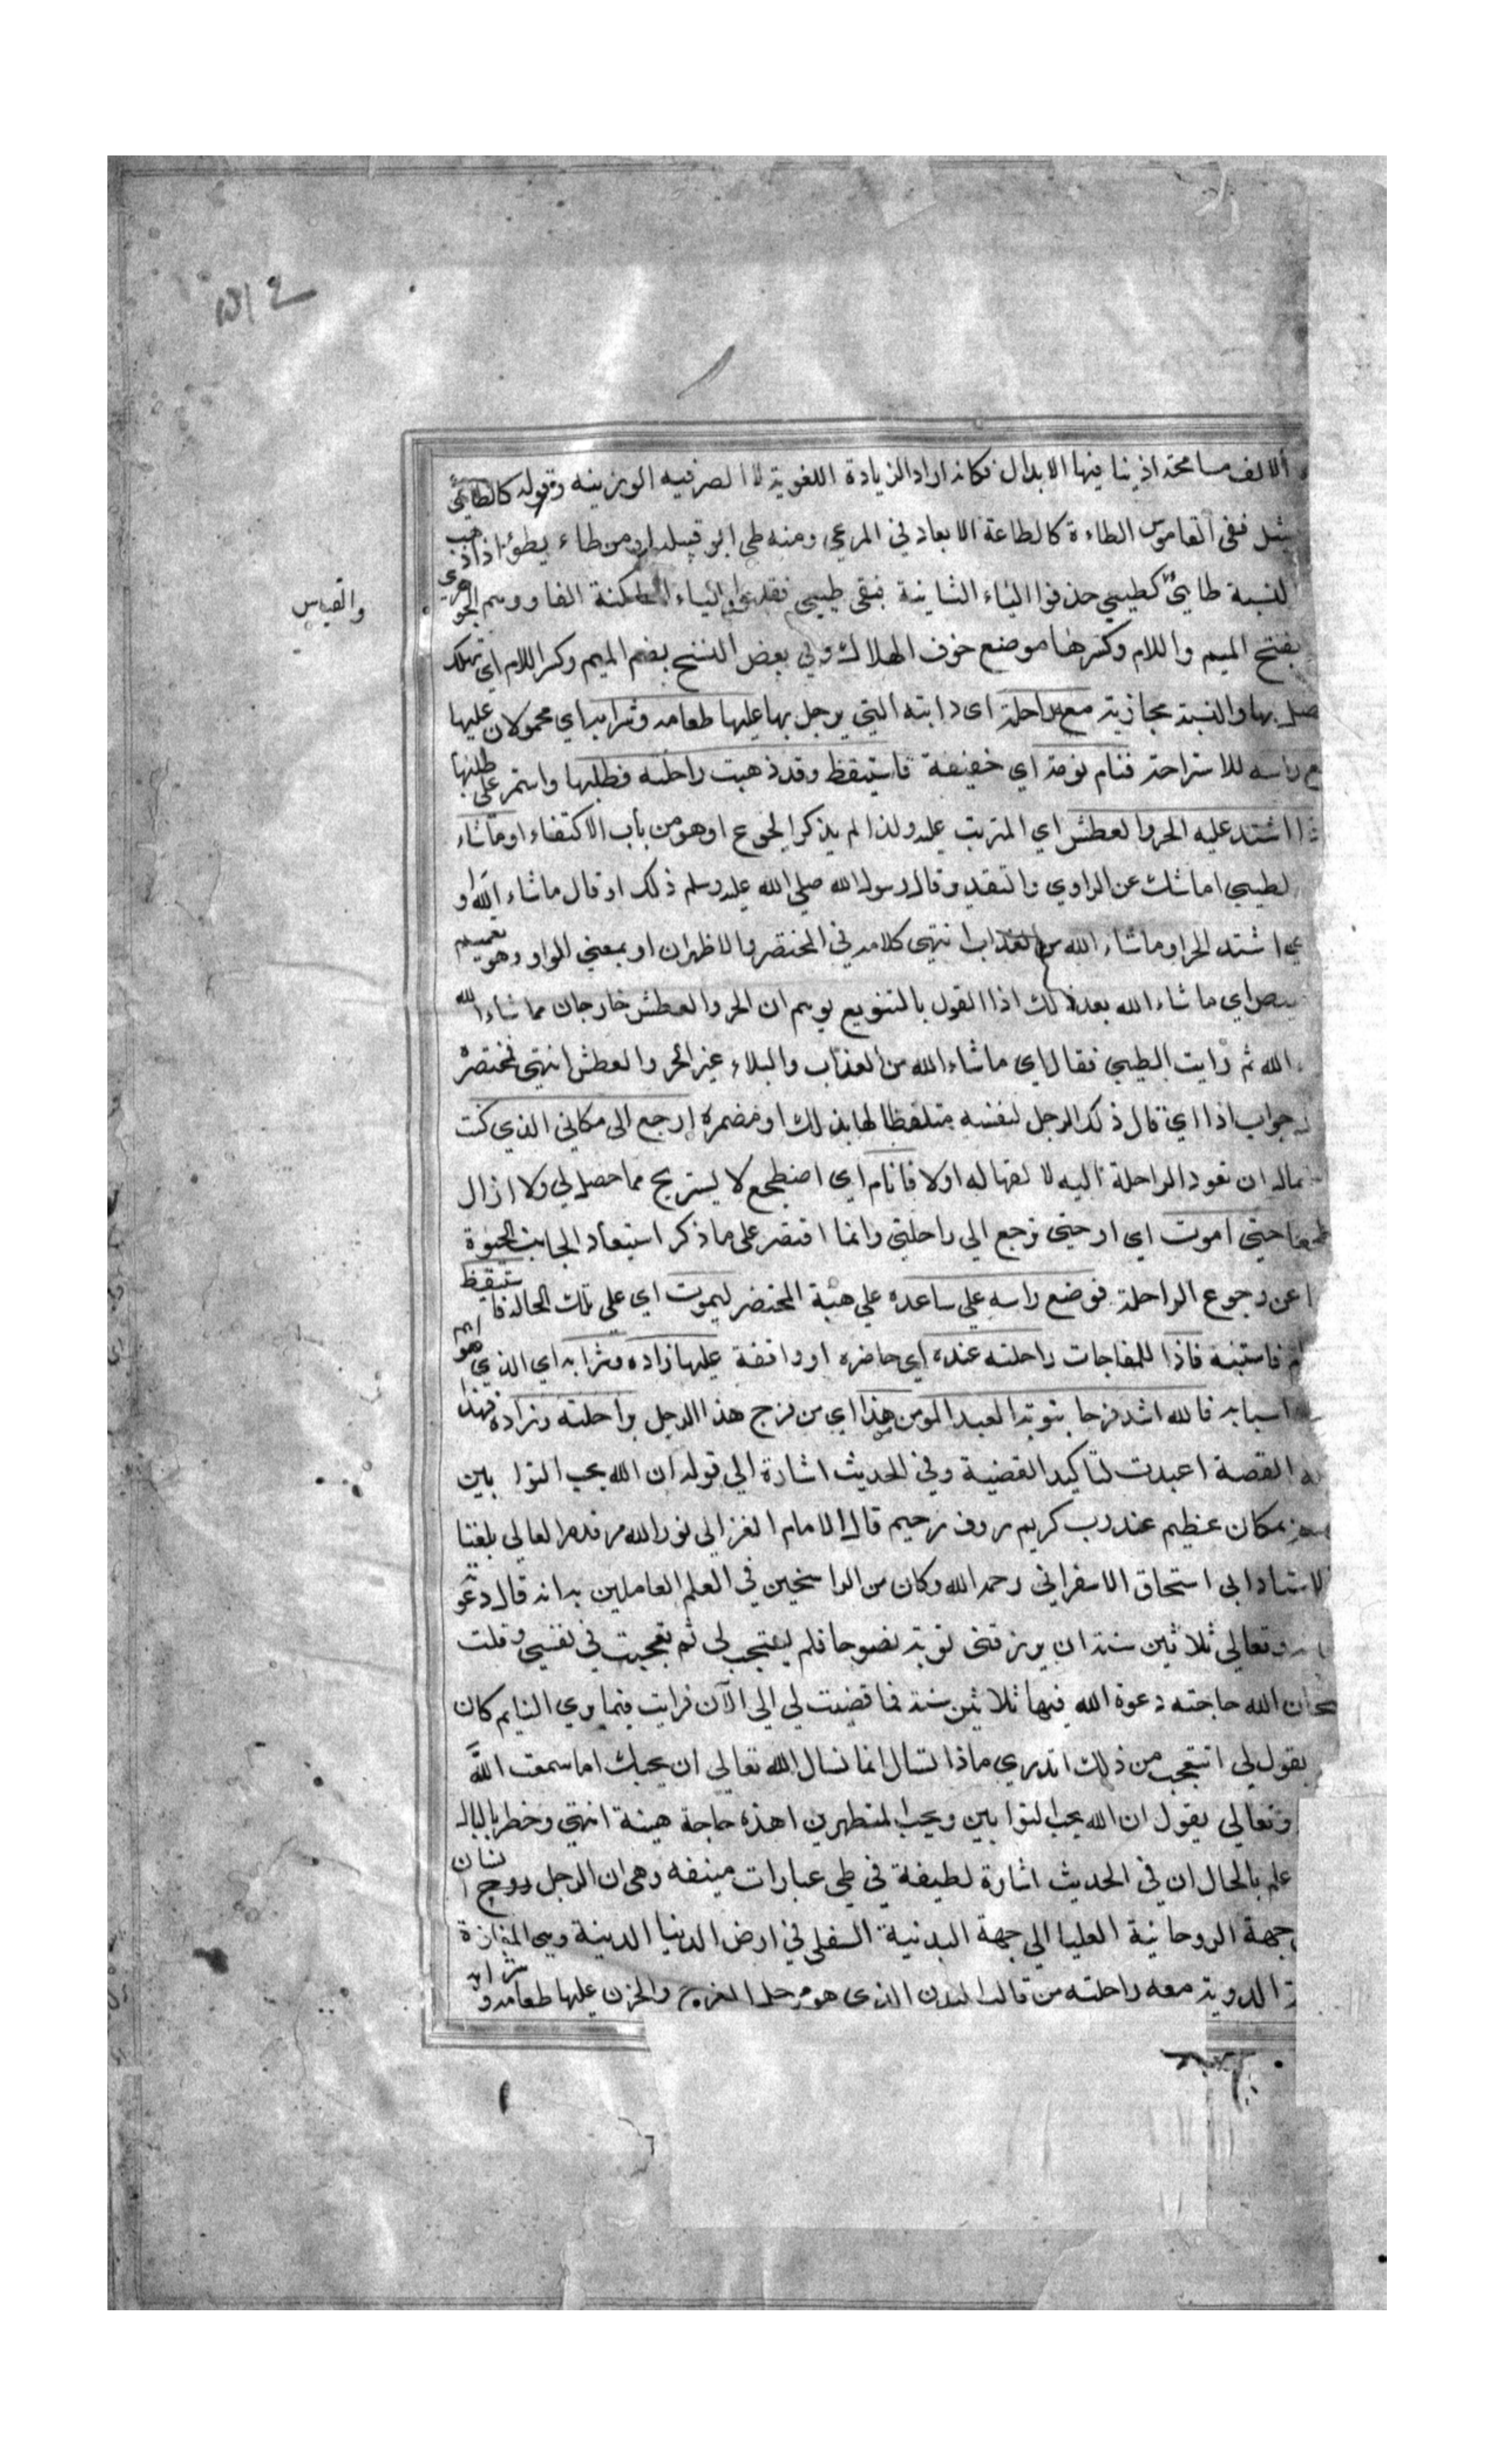 الالف مسامحة اذ بنا فيها الابدال فكانه اراد الزيادة اللغوية لا الصرفيه الوزنيه وقوله كالطائي
ففي القاموس الطاءة كالطاعة الابعاد في المرعى ومنه طي ابو قبيلة او من طاء يطوء اذا ذهب
لنسبة طائي كطيعي حذفوا الياء الثانية فبقي طيئي فقلبوا الياء الساكنة الفا ووهم الجوهري
والقياس
بفتح الميم واللام وكسرها موضع خوف الهلاك وفي بعض النسخ بضم الميم وكسر اللام اي تهلك
بها والنسبة مجازية معه راحلة اي دابته التي يرحل بها عليها طعامه وشرابه اي محمولان عليها
راسه للاستراحة فنام نومة اي خفيفة فاستيقظ وقد ذهبت راحلته فطلبها واستمر على طلبها
اشتد عليه الحر والعطش اي المترتب عليه ولذا لم يذكر الجوع او هو من باب الاكتفاء او ما شاء
لطيبي اما شك عن الراوي والتقدير وقال رسول الله صلى الله عليه وسلم ذلك او قال ما شاء الله او
اشتد الحر او ما شاء الله من العذاب انتهى كلامه في المختصر والاظهر ان او بمعنى الواو وهو تعميم
اي ما شاء الله بعد ذلك اذا القول بالتنويع يوهم ان الحر والعطش خارجان مما شاء الله
الله ثم رايت الطيبي فقال اي ما شاء الله من العذاب والبلاء غير الحر والعطش انتهى مختصره
جواب اذا اي قال ذلك الرجل لنفسه متلفظا لها بذلك او مضمره ارجع الى مكاني الذي كنت
ان تعود الراحلة اليه لالفها له اولا فانام اي اضطجع لا يستريح مما حصل لي ولا ازال
حتى اموت اي او حتى ترجع الى راحلتي وانما اقتصر على ما ذكر استبعاد الجانب الحيوة
عن رجوع الراحلة فوضع راسه على ساعده على هيئة المحتضر ليموت اي على تلك الحالة فاستيقظ
فاستنبه فاذا للمفاجات راحلته عنده اي حاضره او واقفة عليها زاده وشرابه اي الذي هو اهم
اسبابه فالله اشد فرحا بتوبة العبد المومن من هذا اي من فرح هذا الرجل براحلته وزاده فهذا
القصة اعيدت لتاكيد القضية وفي الحديث اشارة الى قوله ان الله يحب التوابين
بمكان عظيم عند رب كريم روف رحيم قال الامام الغزالي نور الله مرقده العالي بلغنا
الاستاد ابي اسحاق الاسفراني رحمه الله وكان من الراسخين في العلم العاملين به انه قال دعوت
وتعالى ثلاثين سنة ان يرزقني توبة نصوحا فلم يستجب لي ثم تعجبت في نفسي وقلت
سبحان الله حاجته دعوة الله فيها ثلاثين سنة فما قضيت لي الى الآن فرايت فيما يري النايم كان
يقول لي اتتعجب من ذلك اتدري ماذا تسال انما تسال الله تعالى ان يحبك اما سمعت الله
وتعالى يقول ان الله يحب التوابين ويحب المتطهرين اهذه حاجة هينة انتهى وخطر بالبال
علم بالحال ان في الحديث اشارة لطيفة في طي عبارات منيفه وهي ان الرجل روح انسان
جهة الروحانية العليا الى جهة البدنية السفلى في ارض الدنيا الدنية وهي المفازة
الدوية معه راحلته من قالب البدن الذي هو مرحل الفرح والحزن عليها طعامه وشرابه